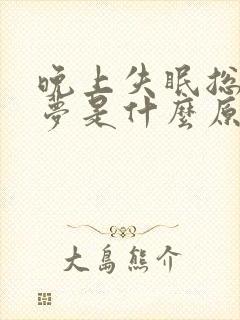 晚上失眠总
梦是什麼原
大島熊介